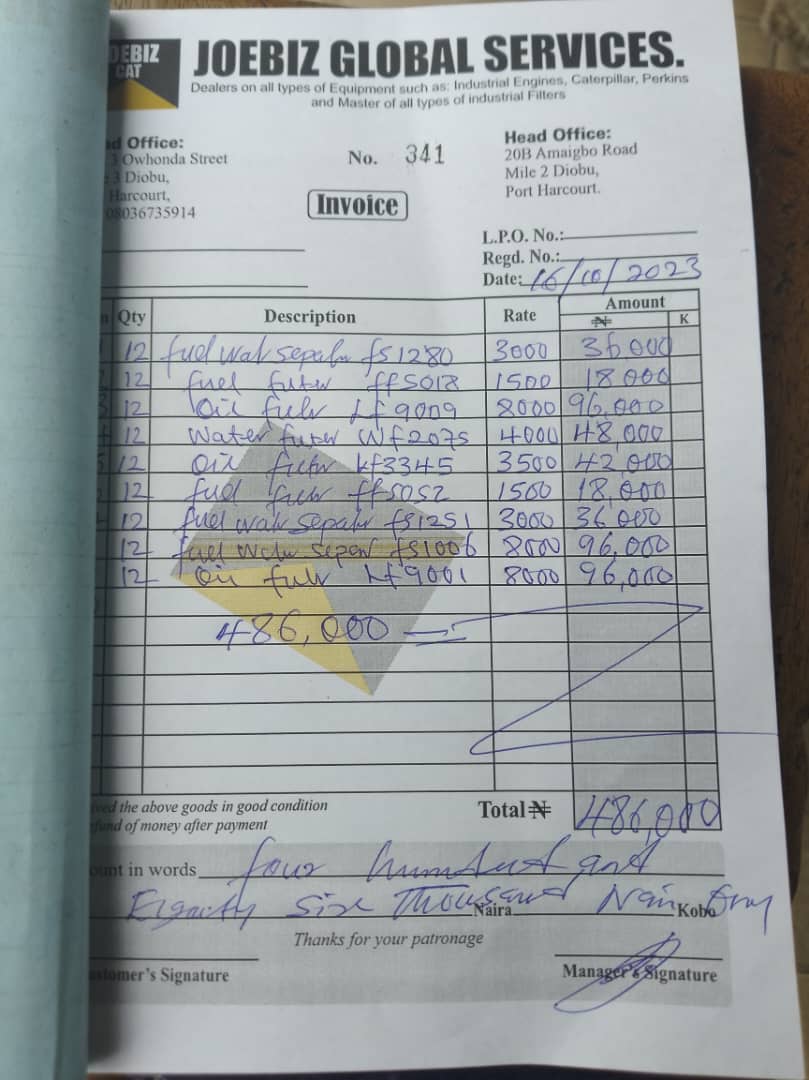 OEBIZ
CAT
JOEBIZ GLOBAL SERVICES.
Dealers on all types of Equipment such as: Industrial Engines, Caterpillar, Perkins
and Master of all types of industrial Filters
d Office:
Owhonda Street
3 Diobu,
Harcourt,
08036735914
No. 341
Invoice
Head Office:
20B Amaigbo Road
Mile 2 Diobu,
Port Harcourt.
L.P.O. No.:
Regd. No.:
Date: 16/10/2023
Qty Description Rate Amount
₦ K
12 fuel wat sepatr fs1280 3000 36,000
12 fuel filter ff5018 1500 18,000
12 Oil filtr Lf9009 8000 96,000
12 Water filter Wf2075 4000 48,000
12 Oil filter Lf3345 3500 42,000
12 fuel filtr ff5052 1500 18,000
12 fuel watr sepatr fs1251 3000 36,000
12 fuel watr separ fs1006 8000 96,000
12 Oil filtr Lf9001 8000 96,000
486,000
ved the above goods in good condition
fund of money after payment
Total ₦ 486,000
ount in words four hundred and
Eighty Six Thousand Naira Nair Kobo Only
Thanks for your patronage
stomer's Signature
Manager's Signature